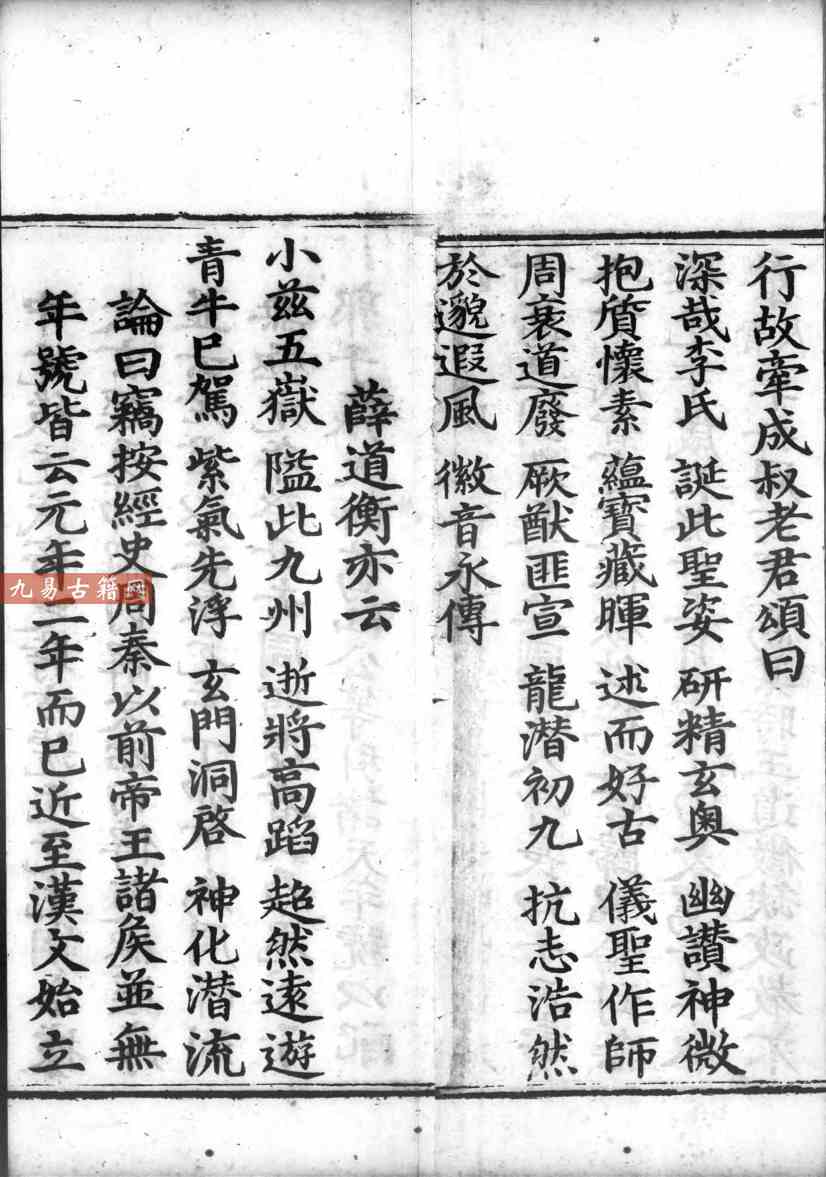 行故牽成叔老君頌曰
深哉李氏 誕此聖姿 研精玄奥 幽讃神微
抱質懷素 藴寶藏暉 述而好古 儀聖作師
周衰道廢 厥猷匪宣 龍潜初九 抗志浩然
於邈遐風 徽音永傳
薛道衡亦云
小兹五嶽 隘此九州 逝將高蹈 超然遠遊
青牛已駕 紫氣先浮 玄門洞啓 神化潜流
論曰竊按經史周秦以前帝王諸侯並無
年號皆云元年二年而已近至漢文始立
九易古籍网